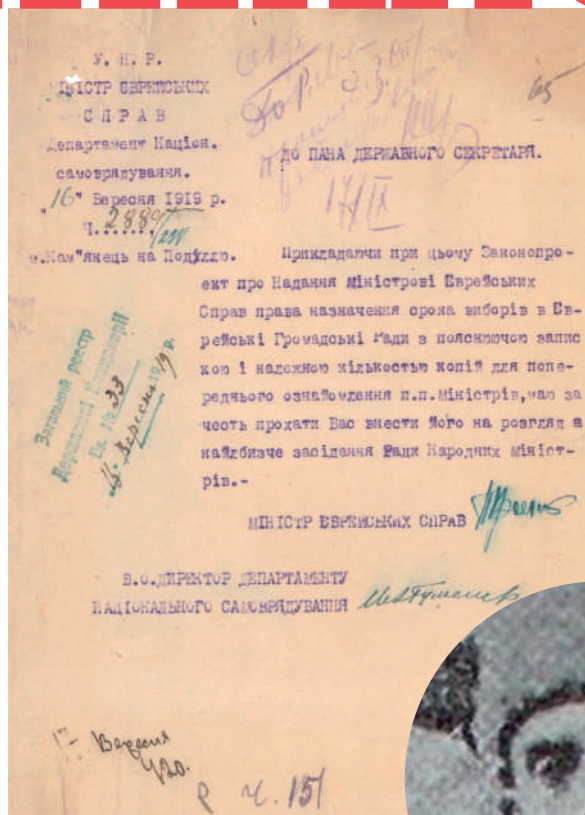 У. Н. Р.
МІНІСТР ЕВРЕЙСЬКИХ
СПРАВ
Департамент Націон.
самоврядування.
"16" Вересня 1919 р.
Ч. 2889/238
м.Кам"янець на Поділлю.
65
17/IX
ДО ПАНА ДЕРЖАВНОГО СЕКРЕТАРЯ.
Прикладаючи при цьому Законопро-
ект про Надання Міністрові Еврейських
Справ права назначення срока виборів в Ев-
рейські Громадські Ради з пояснюючою запис
кою і належною кількостью копій для попе-
реднього ознайомлення п.п.Міністрів,маю за
честь прохати Вас внести його на розгляд в
найближче засідання Ради Народних Мініст-
рів.-
Загальний реєстр
Державної
Вх. № 33
Вересня 1919 р.
МІНІСТР ЕВРЕЙСЬКИХ СПРАВ
В.О.ДИРЕКТОР ДЕПАРТАМЕНТУ
НАЦІОНАЛЬНОГО САМОВРЯДУВАННЯ
Вересня
р ч. 151